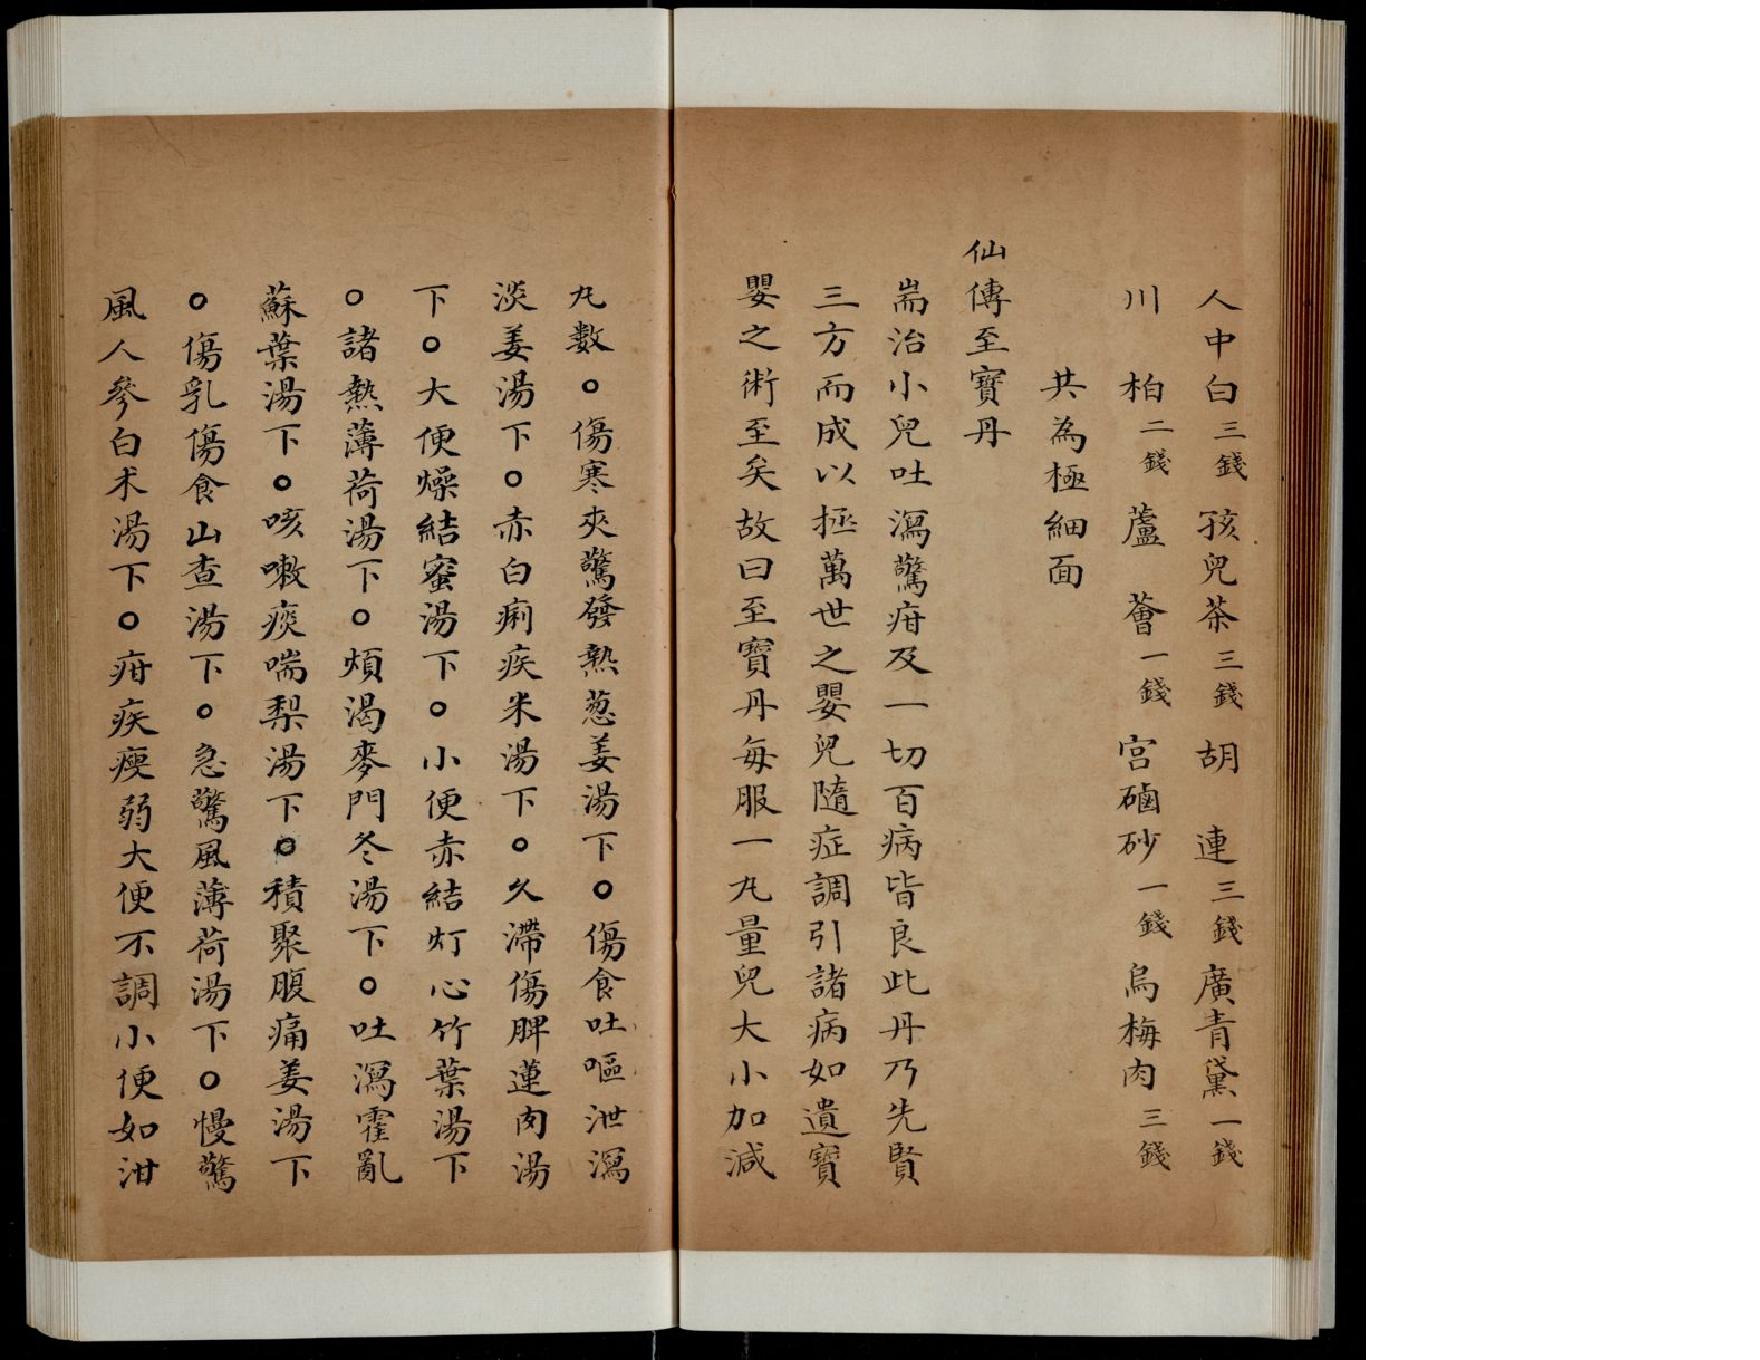 人中白三錢 孩兒茶三錢 胡連三錢 廣青黛一錢
川柏二錢 蘆薈一錢 宮硇砂一錢 烏梅肉三錢
共為極細面
仙傳至寶丹
耑治小兒吐瀉驚疳及一切百病皆良此丹乃先賢
三方而成以拯萬世之嬰兒隨症調引諸病如遺寶
嬰之術至矣故曰至寶丹每服一九量兒大小加減
九数○傷寒夾驚發熱葱姜湯下○傷食吐嘔泄瀉
淡姜湯下○赤白痢疾米湯下○久滯傷脾蓮肉湯
下○大便燥結蜜湯下○小便赤結灯心竹葉湯下
○諸熱薄荷湯下○煩渴麥門冬湯下○吐瀉霍亂
蘇葉湯下○咳嗽痰喘梨湯下○積聚腹痛姜湯下
○傷乳傷食山查湯下○急驚風薄荷湯下○慢驚
風人參白术湯下○疳疾瘦弱大便不調小便如泔